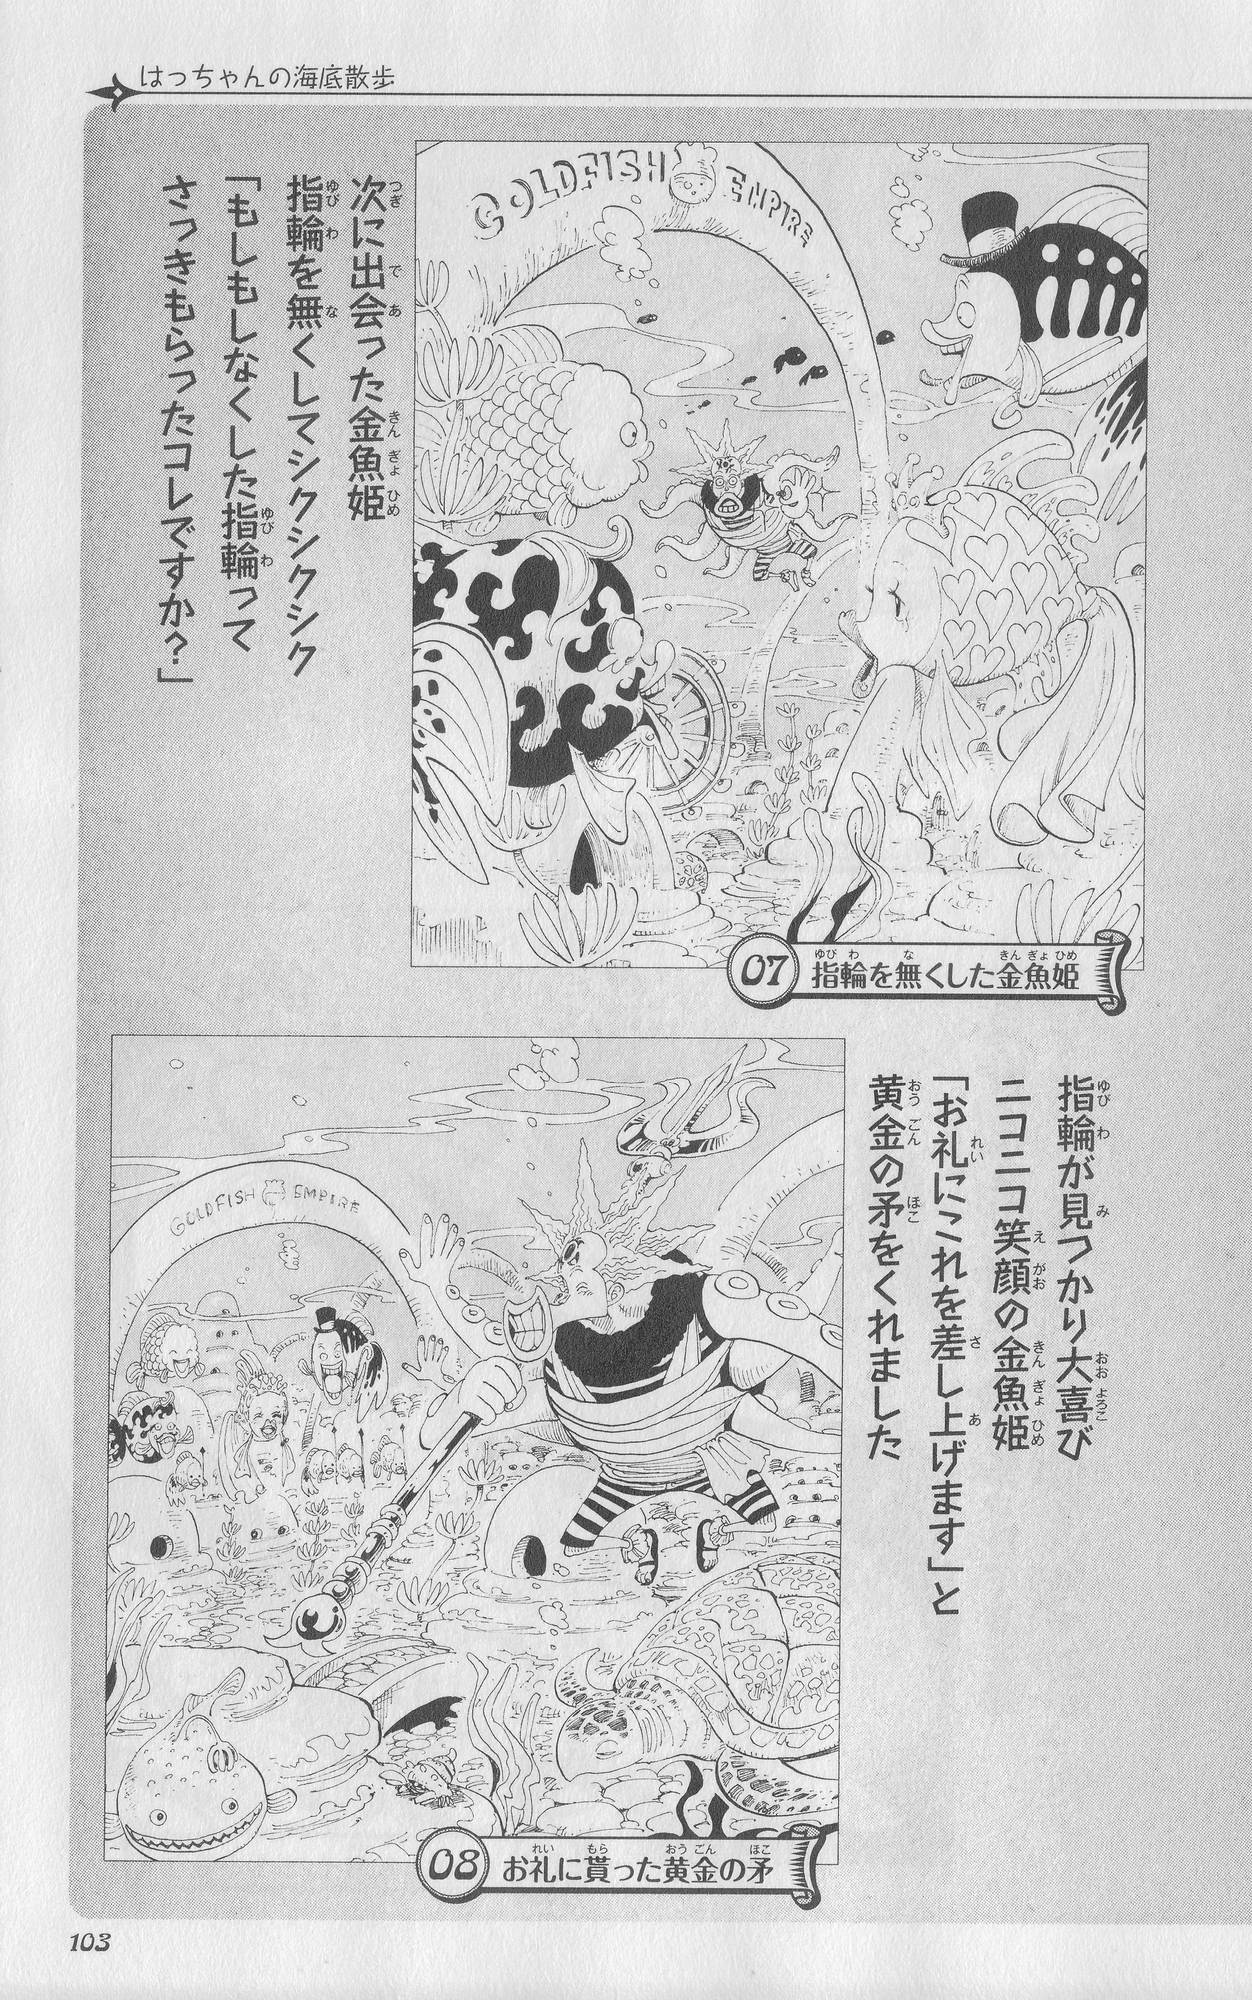 はっちゃんの海底散歩
GOLDFISH EMPIRE
次に出会った金魚姫
指輪を無くしてシクシクシクシク
「もしもしなくした指輪って
さっきもらったコレですか?」
07 指輪を無くした金魚姫
指輪が見つかり大喜び
ニコニコ笑顔の金魚姫
「お礼にこれを差し上げます」と
黄金の矛をくれました
GOLDFISH EMPIRE
08 お礼に貰った黄金の矛
103